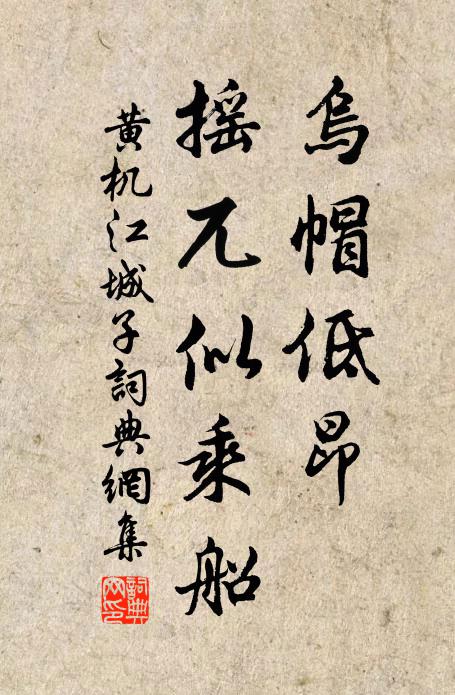 烏帽低昂
搖兀似乘船
黄机江城子詞典網集
詞典网印